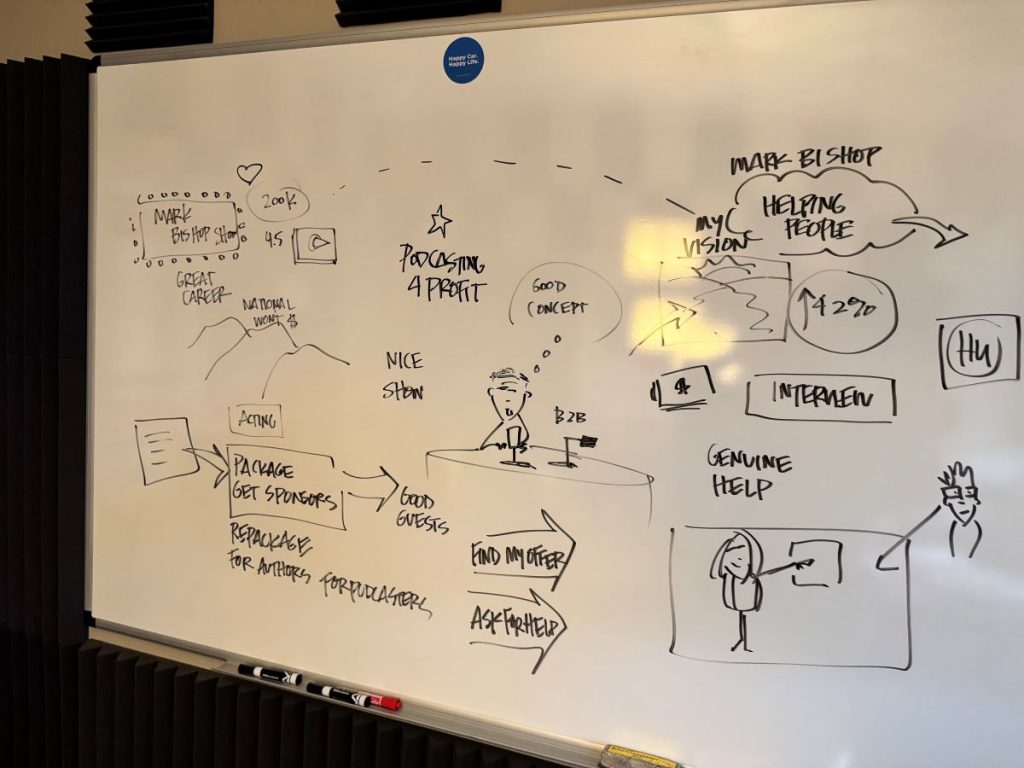 Happy Car.
Happy Life.
MARK
BISHOP SHOW
200K
4.5
GREAT
CAREER
NATIONAL
WON'T $
PODCASTING
4 PROFIT
GOOD
CONCEPT
MARK BISHOP
HELPING
PEOPLE
MY
VISION
42%
HU
NICE
SHOW
B2B
$
INTERVIEW
ACTING
PACKAGE
GET SPONSORS
GOOD
GUESTS
REPACKAGE
FOR AUTHORS FOR PODCASTERS
FIND MY OFFER
ASK FOR HELP
GENUINE
HELP